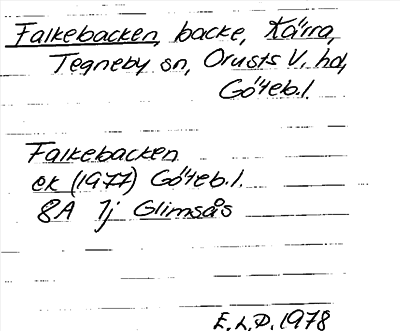 Falkebacken, backe, Kärra,
Tegneby sn, Orusts V. hd,
Göteb.l.
Falkebacken
ek (1977) Göteb.l.
8A 7j Glimsås
E.L.P. 1978